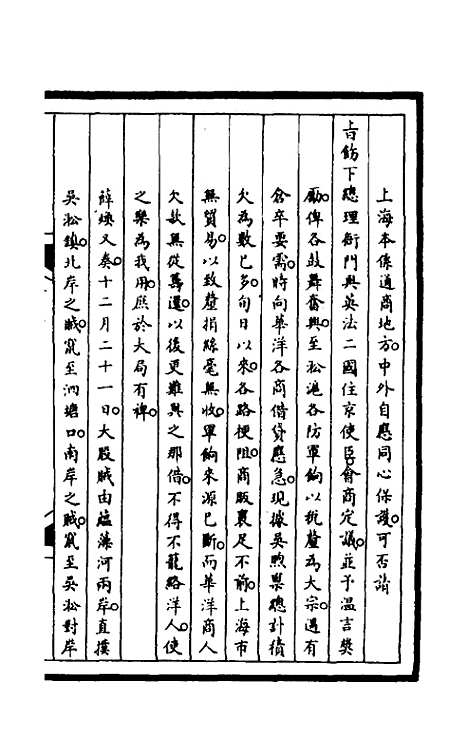 上海本係通商地方。中外自應同心保護。可否請
旨飭下總理衙門與英法二國住京使臣會商定議。並予溫言獎
勵。俾各鼓舞奮興。至松滬各防軍餉以稅釐為大宗。遇有
倉卒要需。時向華洋各商借貸應急。現據吳煦稟總計積
欠為數已多。旬日以來。各路梗阻。商販裹足不前。上海市
無貿易。以致釐捐絲毫無收。軍餉來源已斷。而華洋商人
欠款無從籌還。以後更難與之那借。不得不籠絡洋人。使
之樂為我用。庶於大局有裨。
薛煥又奏。十二月二十一日。大股賊由蕰藻河兩岸。直撲
吳淞鎮。北岸之賊。竄至泗塘口。南岸之賊。竄至吳淞對岸